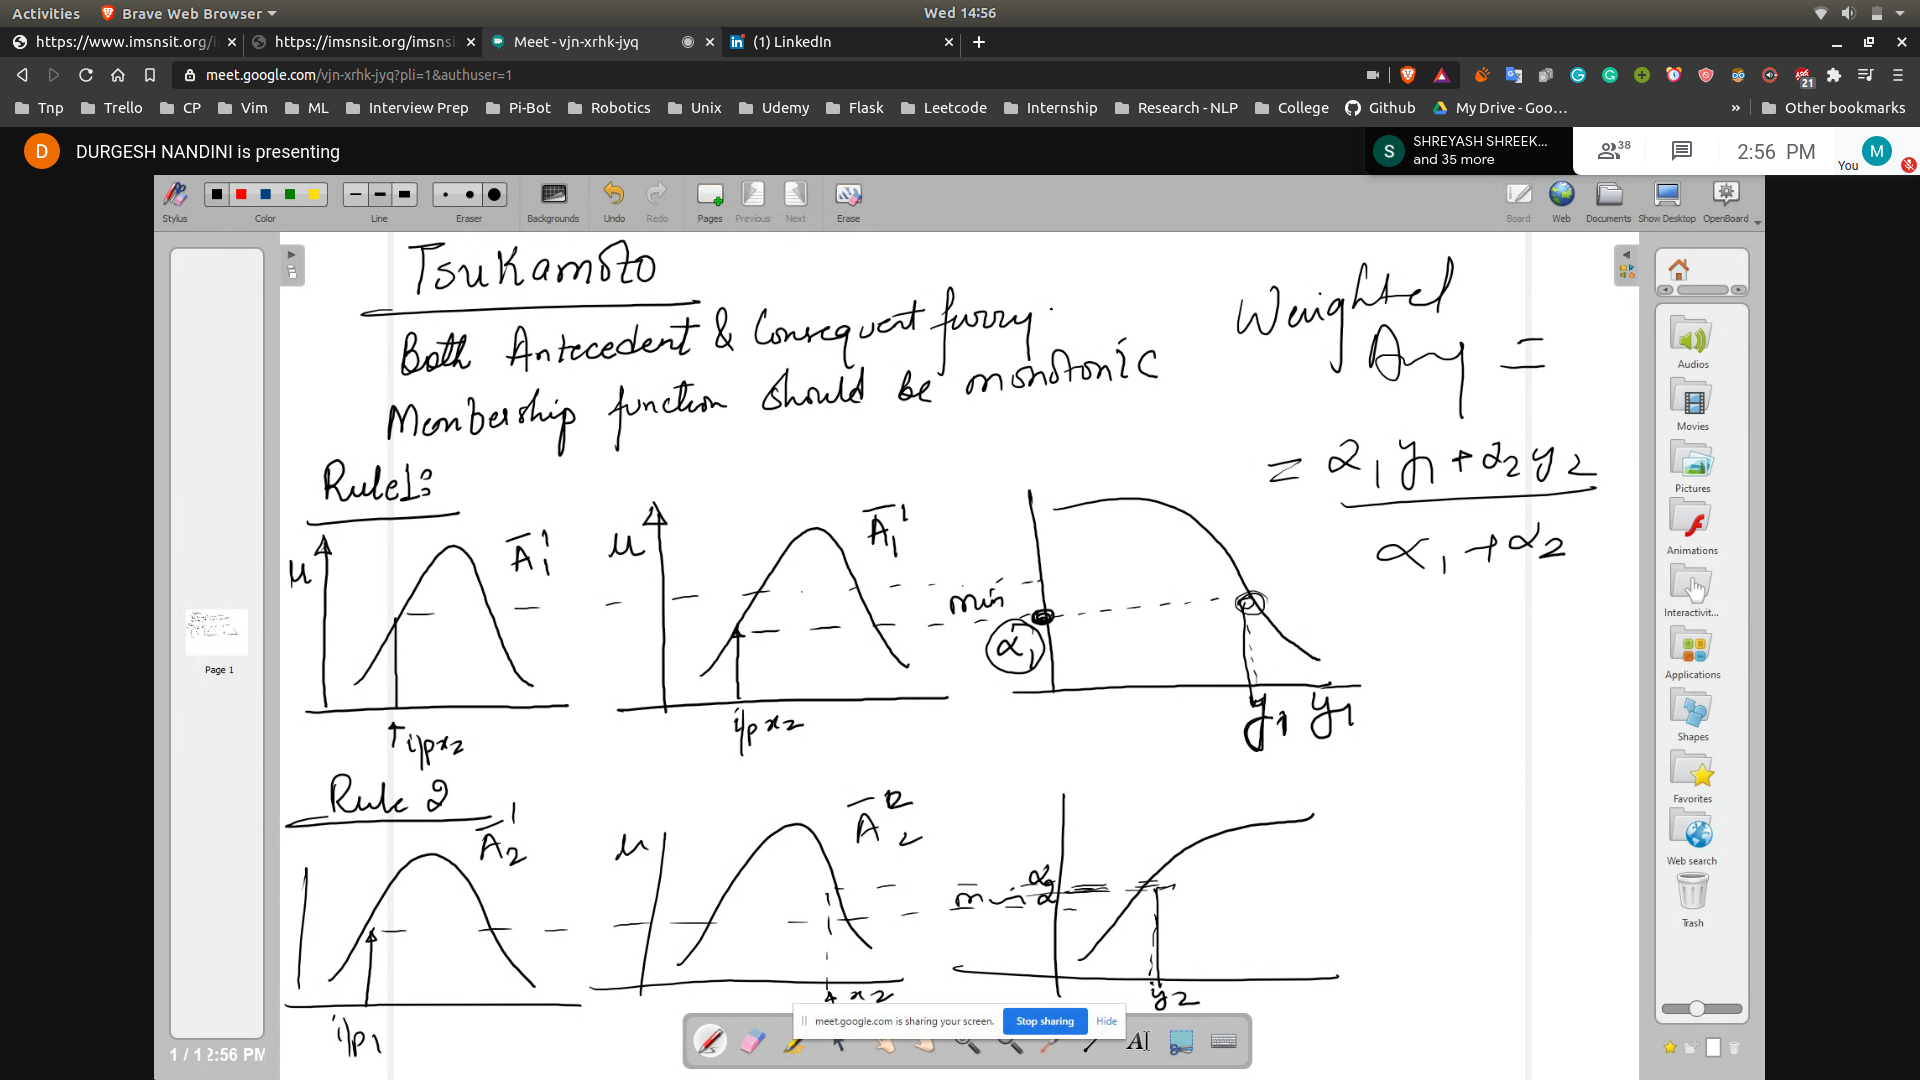 Activities
Brave Web Browser
Wed 14:56
https://www.imsnsit.org/i
https://imsnsit.org/imsnsi
Meet - vjn-xrhk-jyq
(1) LinkedIn
meet.google.com/vjn-xrhk-jyq?pli=1&authuser=1
21
Tnp Trello CP Vim ML Interview Prep Pi-Bot Robotics Unix Udemy Flask Leetcode Internship Research - NLP College Github My Drive - Goo... » Other bookmarks
D DURGESH NANDINI is presenting
S SHREYASH SHREEK...
and 35 more
38
2:56 PM
You
M
Stylus Color Line Eraser Backgrounds Undo Redo Pages Previous Next Erase Board Web Documents Show Desktop OpenBoard
Tsukamoto
Both Antecedent & Consequent fuzzy.
Membership function should be monotonic
Weighted
Avg =
= α1 y1 + α2 y2
α1 + α2
Rule1:
μ
A̅1 1
μ
A̅1 1
min
α1
i/p x2
i/p x2
y1 y1
Rule 2
A̅2 1
μ
A̅2 2
min
α2
i/p1
x2
y2
Page 1
1 / 1
2:56 PM
Audios
Movies
Pictures
Animations
Interactivit...
Applications
Shapes
Favorites
Web search
Trash
meet.google.com is sharing your screen.
Stop sharing
Hide